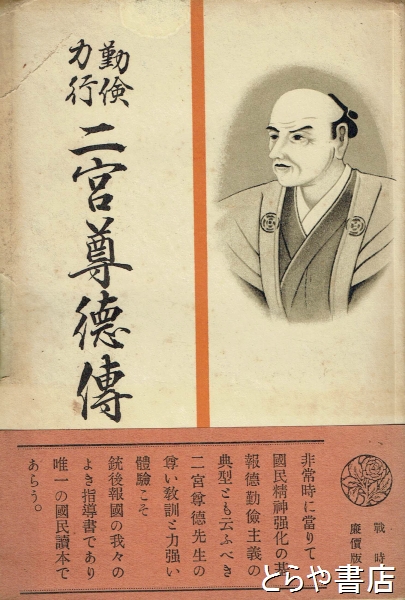 勤倹
力行
二宮尊德傳
戰時
廉價版
非常時に當りて
國民精神强化の基
報德勤儉主義の
典型とも云ふべき
二宮尊德先生の
尊い敎訓と力强い
體驗こそ
銃後報國の我々の
よき指導書であり
唯一の國民讀本で
あらう。
とらや書店